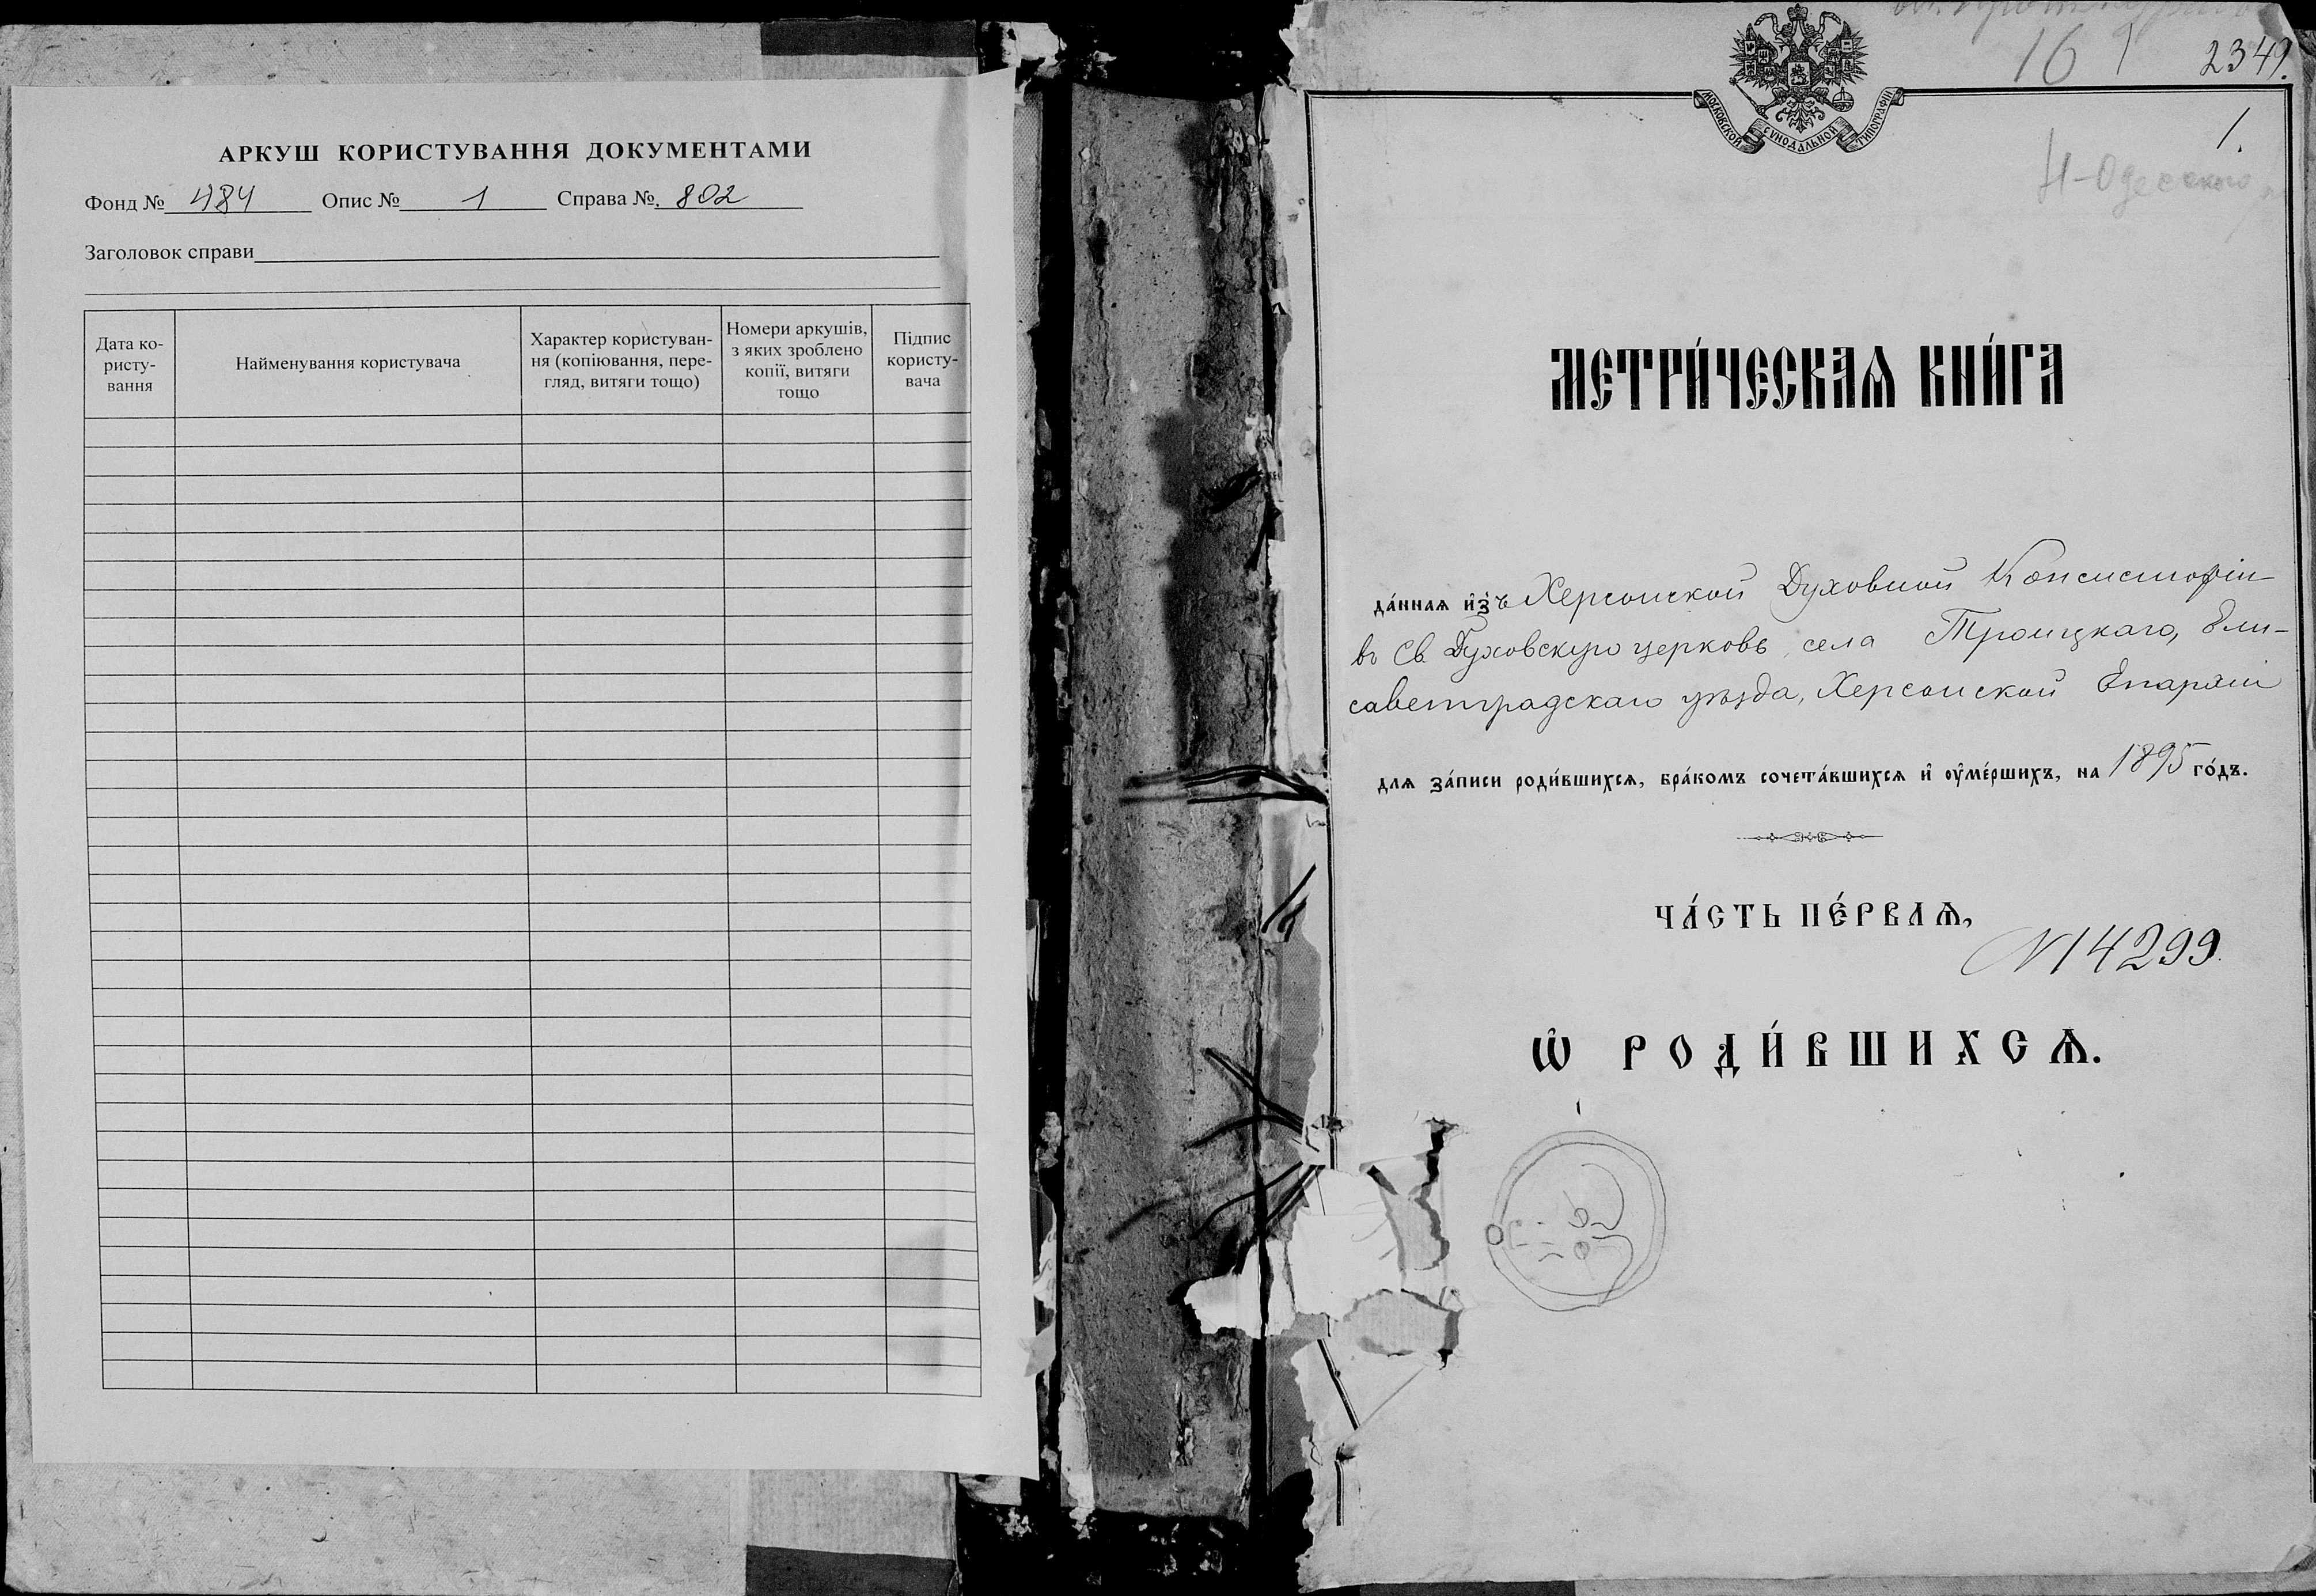 АРКУШ КОРИСТУВАННЯ ДОКУМЕНТАМИ
Фонд № 484 Опис № 1 Справа № 802
Заголовок справи
Дата ко-
ристу-
вання
Найменування користувача
Характер користуван-
ня (копіювання, пере-
гляд, витяги тощо)
Номери аркушів,
з яких зроблено
копії, витяги
тощо
Підпис
користу-
вача
16
2349.
МОСКОВСКОЙ СУНОДАЛЬНОЙ ТИПОГРАФІИ
1.
Н-Одесского
МЕТРИ́ЧЕСКАѦ КНИ́ГА
да́ннаѧ и҆зъ Херсонской Духовной Консисторіи
въ Св. Духовскую церковь села Троицкаго, Ели-
саветградскаго уѣзда, Херсонской Епархіи
для за́писи роди́вшихсѧ, бра́комъ сочета́вшихсѧ и҆ ᲂу҆ме́ршихъ, на 1895 го́дъ.
ЧА́СТЬ ПЕ́РВАѦ,
N 14299.
Ѡ҆ РОДИ́ВШИХСѦ.